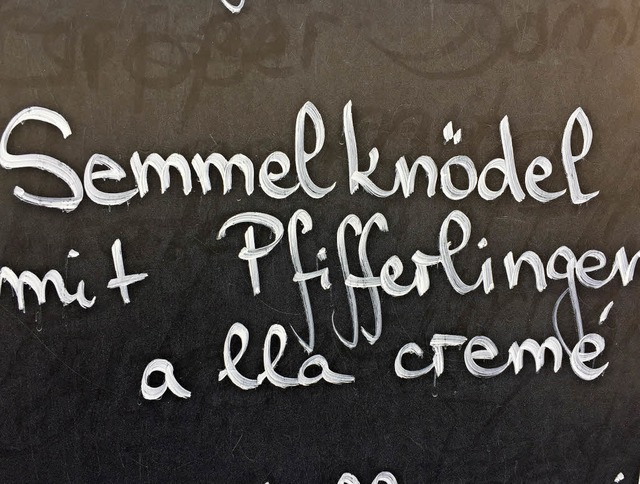 Semmelknödel
mit Pfifferlingen
a lla cremé